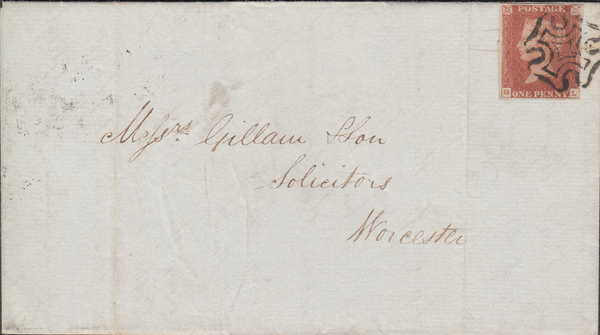 POSTAGE
ONE PENNY
Messrs Gillam & Son
Solicitors
Worcester